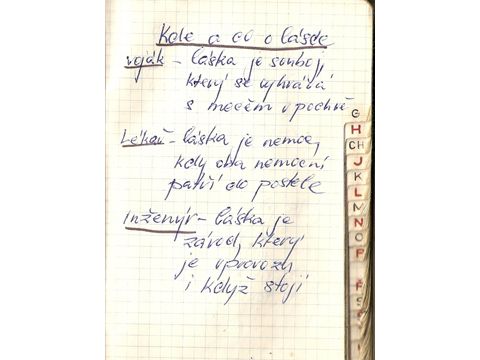 Kde a co o lásce
voják - láska je souboj,
který se vyhrává
s mečem v pochvě
Lékař - láska je nemoc,
kdy oba nemocní
patří do postele
inženýr - láska je
závod, který
je v provozu
i když stojí
G
H
CH
J
K
L
M
N
O
P
Ř
S